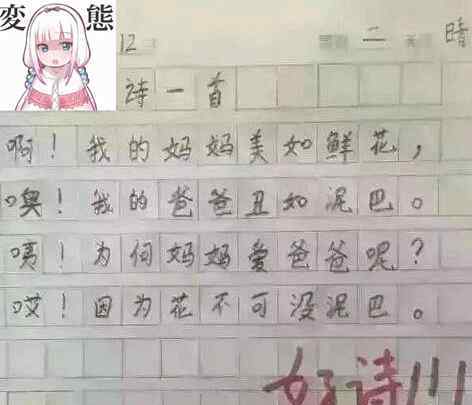 変態
12 二 晴
诗一首
啊！我的妈妈美如鲜花，
噢！我的爸爸丑如泥巴。
咦！为何妈妈爱爸爸呢？
哎！因为花不可没泥巴。
好诗!!!